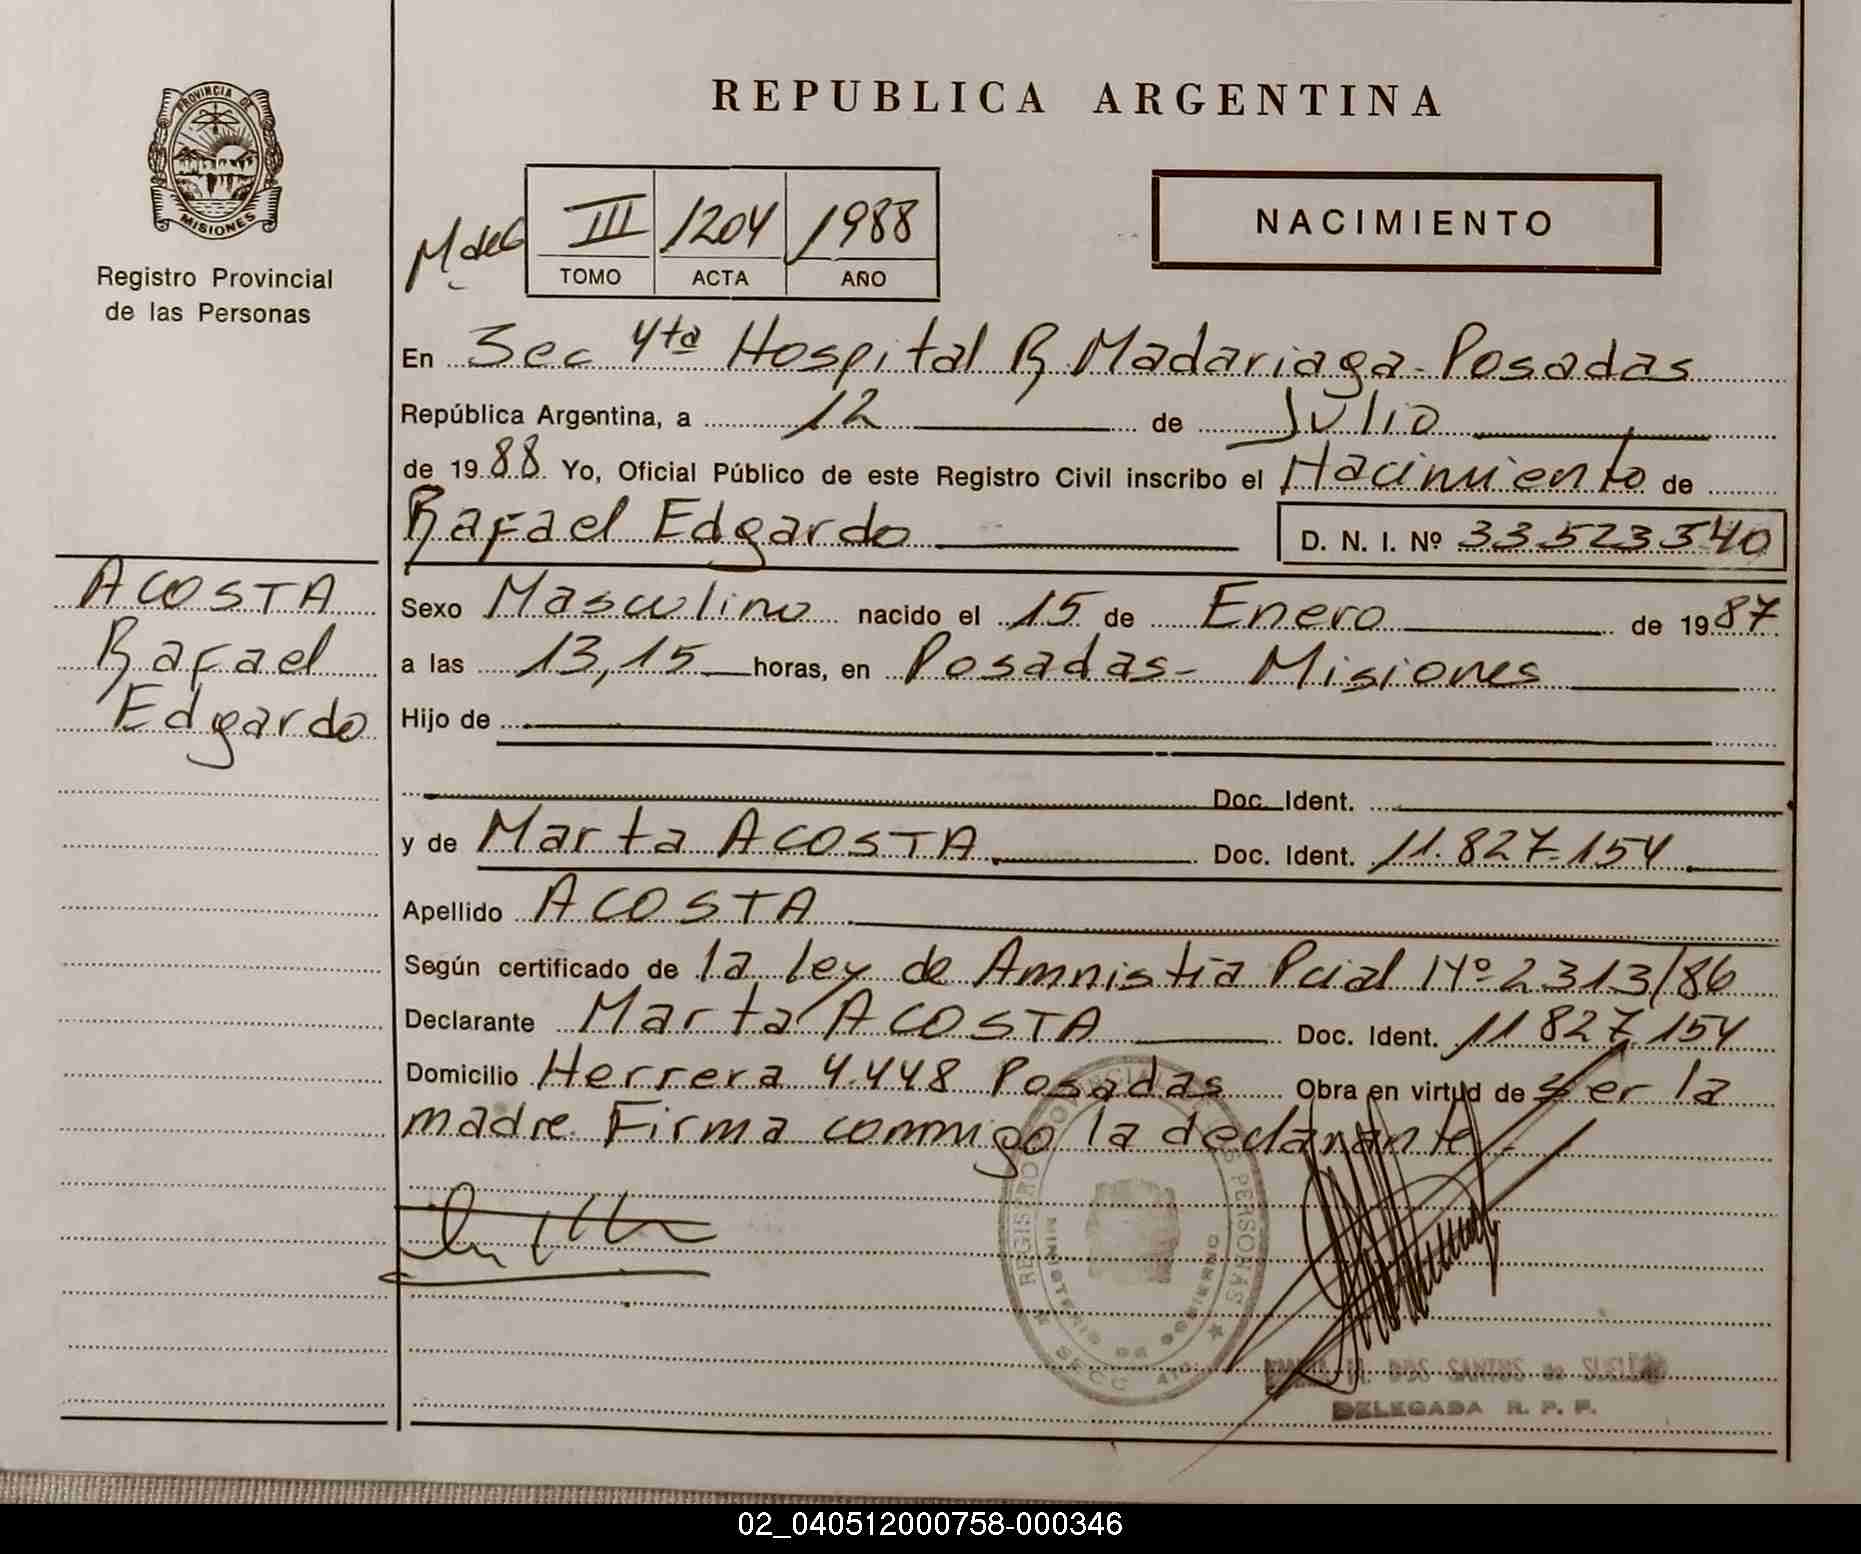 REPUBLICA ARGENTINA
PROVINCIA DE
MISIONES
Registro Provincial
de las Personas
III 1204 1988
TOMO ACTA AÑO
NACIMIENTO
En Sec 4ta Hospital R Madariaga - Posadas
República Argentina, a 12 de Julio
de 1988 Yo, Oficial Público de este Registro Civil inscribo el Nacimiento de
Rafael Edgardo D. N. I. Nº 33.523.340
ACOSTA
Rafael
Edgardo
Sexo Masculino nacido el 15 de Enero de 1987
a las 13,15 horas, en Posadas - Misiones
Hijo de
Doc. Ident.
y de Marta ACOSTA Doc. Ident. 11.827.154
Apellido ACOSTA
Según certificado de la ley de Amnistía Pcial Nº 2313/86
Declarante Marta ACOSTA Doc. Ident. 11.827.154
Domicilio Herrera 4.448 Posadas Obra en virtud de ser la
madre. Firma conmigo la declarante.-
REGISTRO PROVINCIAL PERSONAS
MINISTERIO DE GOBIERNO
SECC 4TA
M. DOS SANTOS de
DELEGADA R. P. P.
02_040512000758-000346